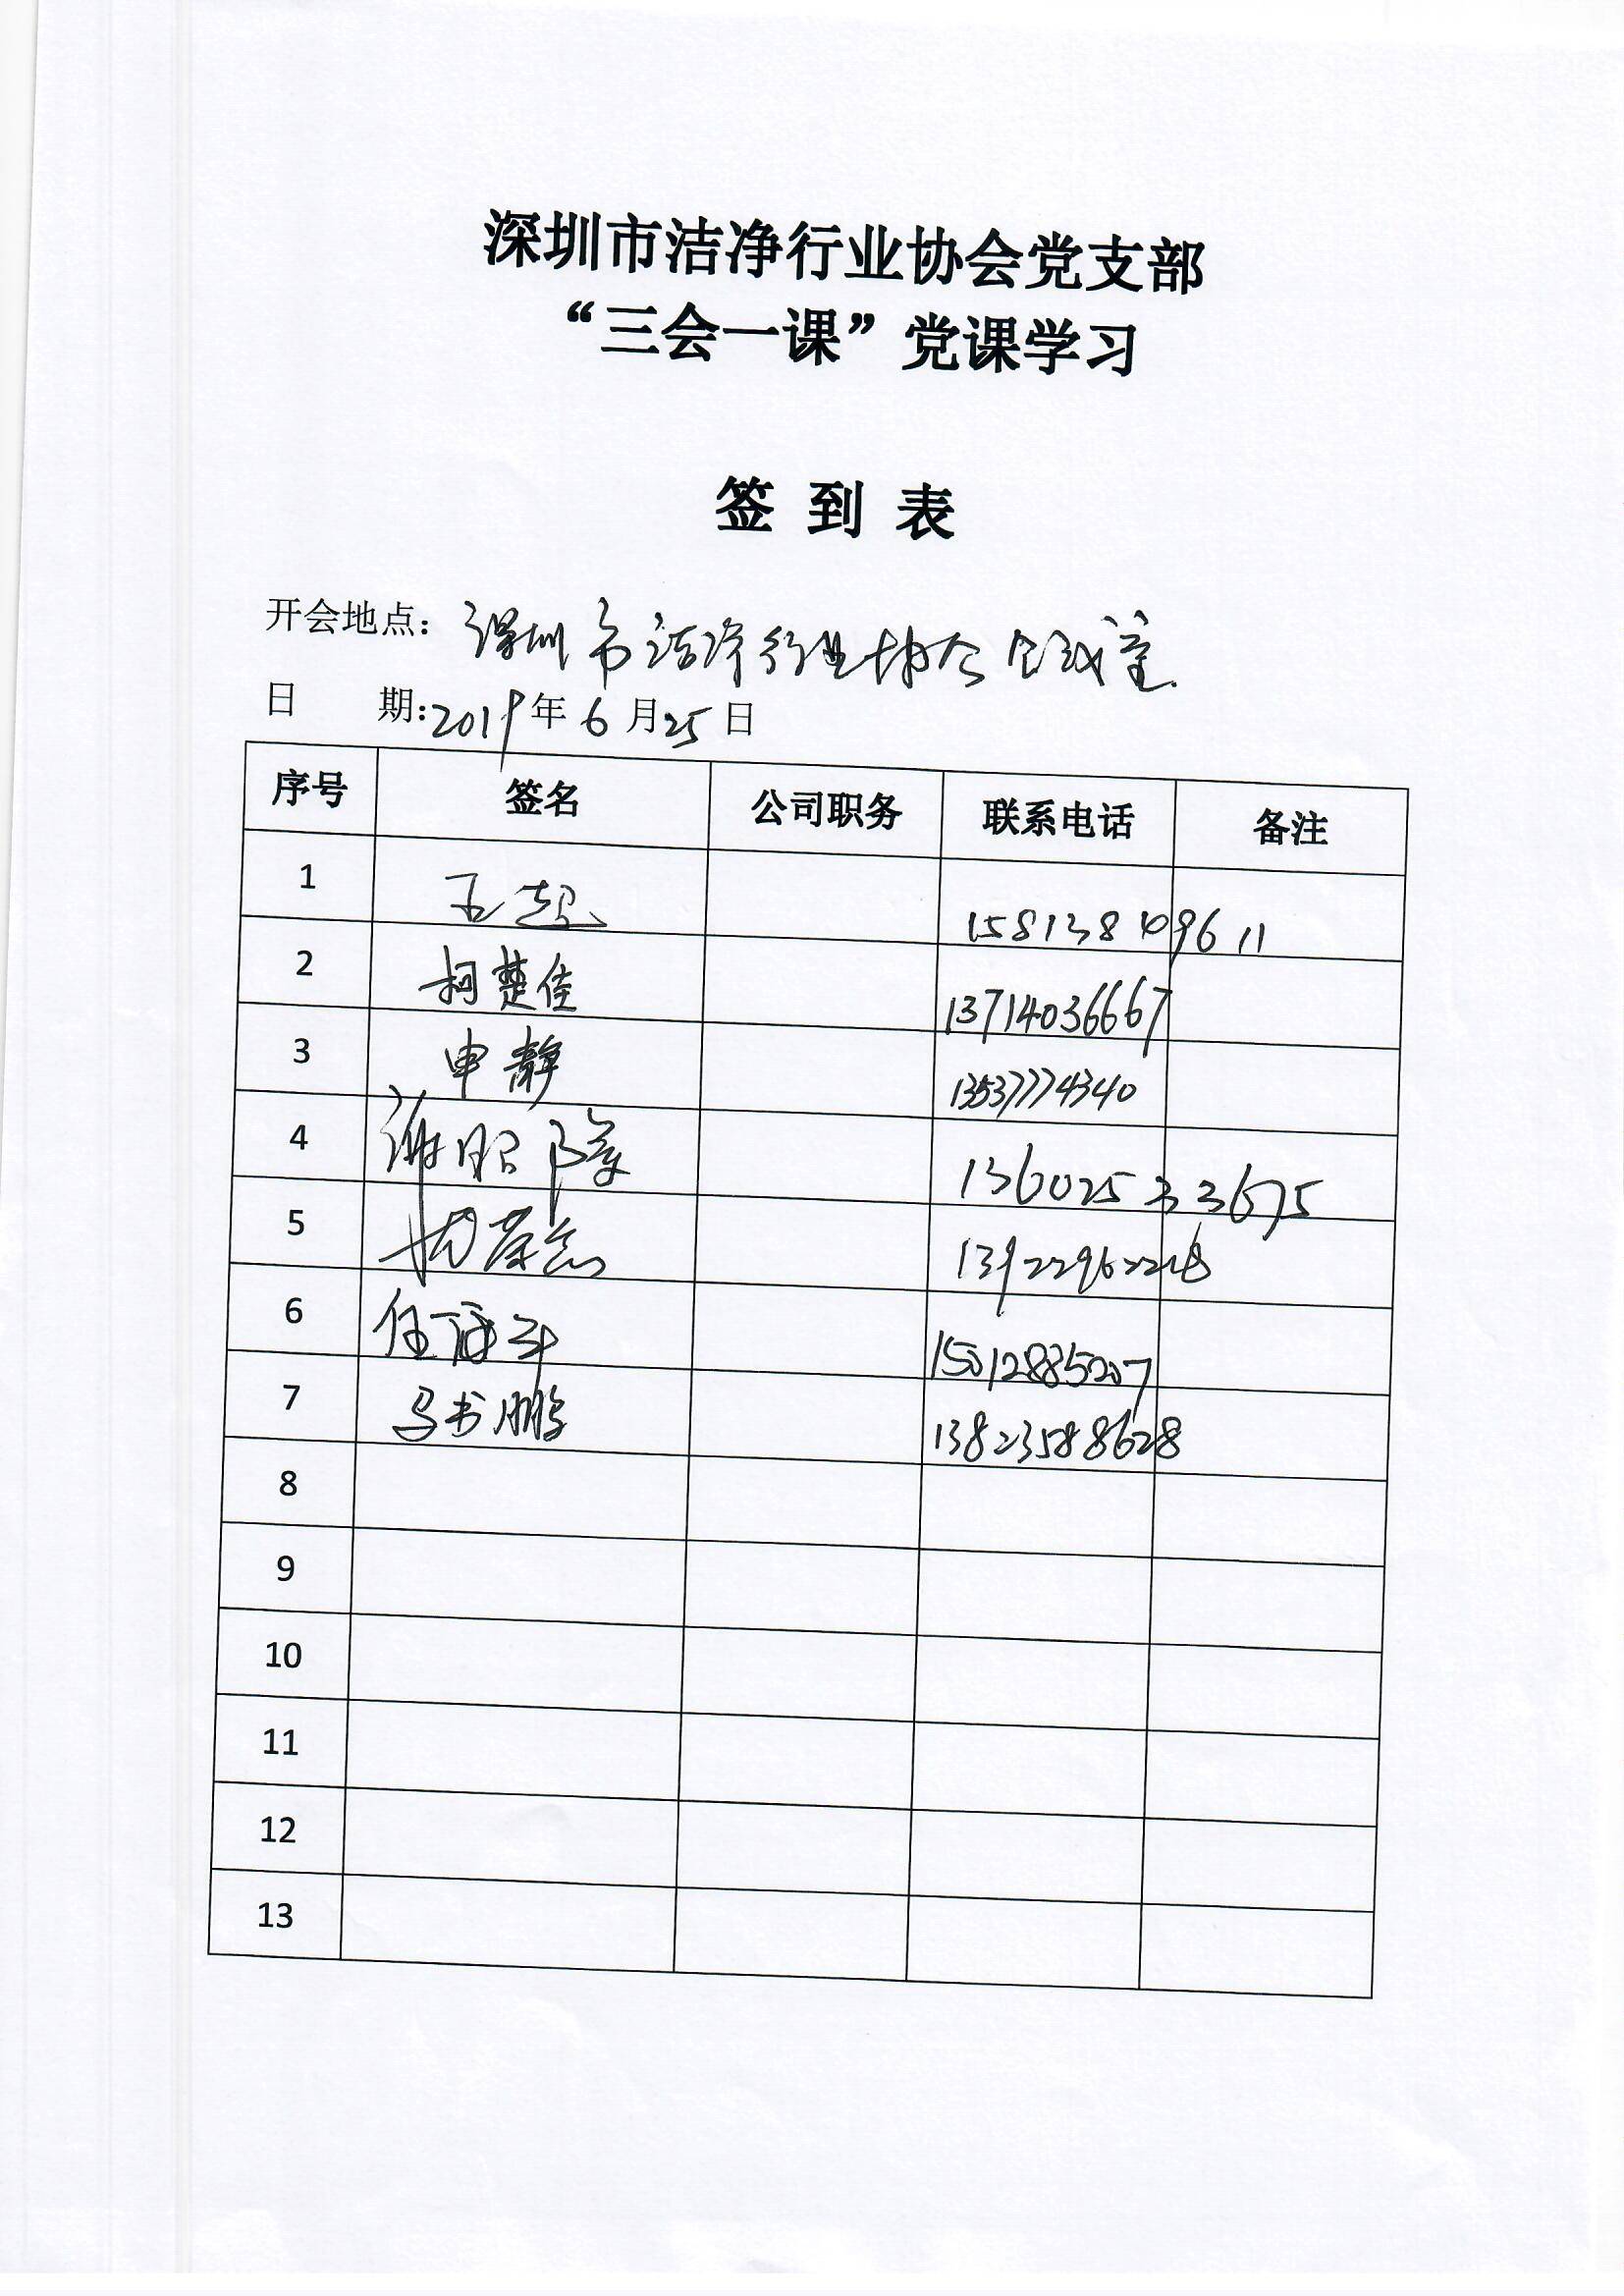 深圳市洁净行业协会党支部
“三会一课”党课学习
签 到 表
开会地点：深圳市洁净行业协会会议室
日 期：2019年6月25日
序号 签名 公司职务 联系电话 备注
1 王超 15813849611
2 柯楚佳 13714036667
3 申静 13537774340
4 谢昭隆 13602533675
5 杨 13922962228
6 任 15012885207
7 马书鹏 13823588628
8
9
10
11
12
13